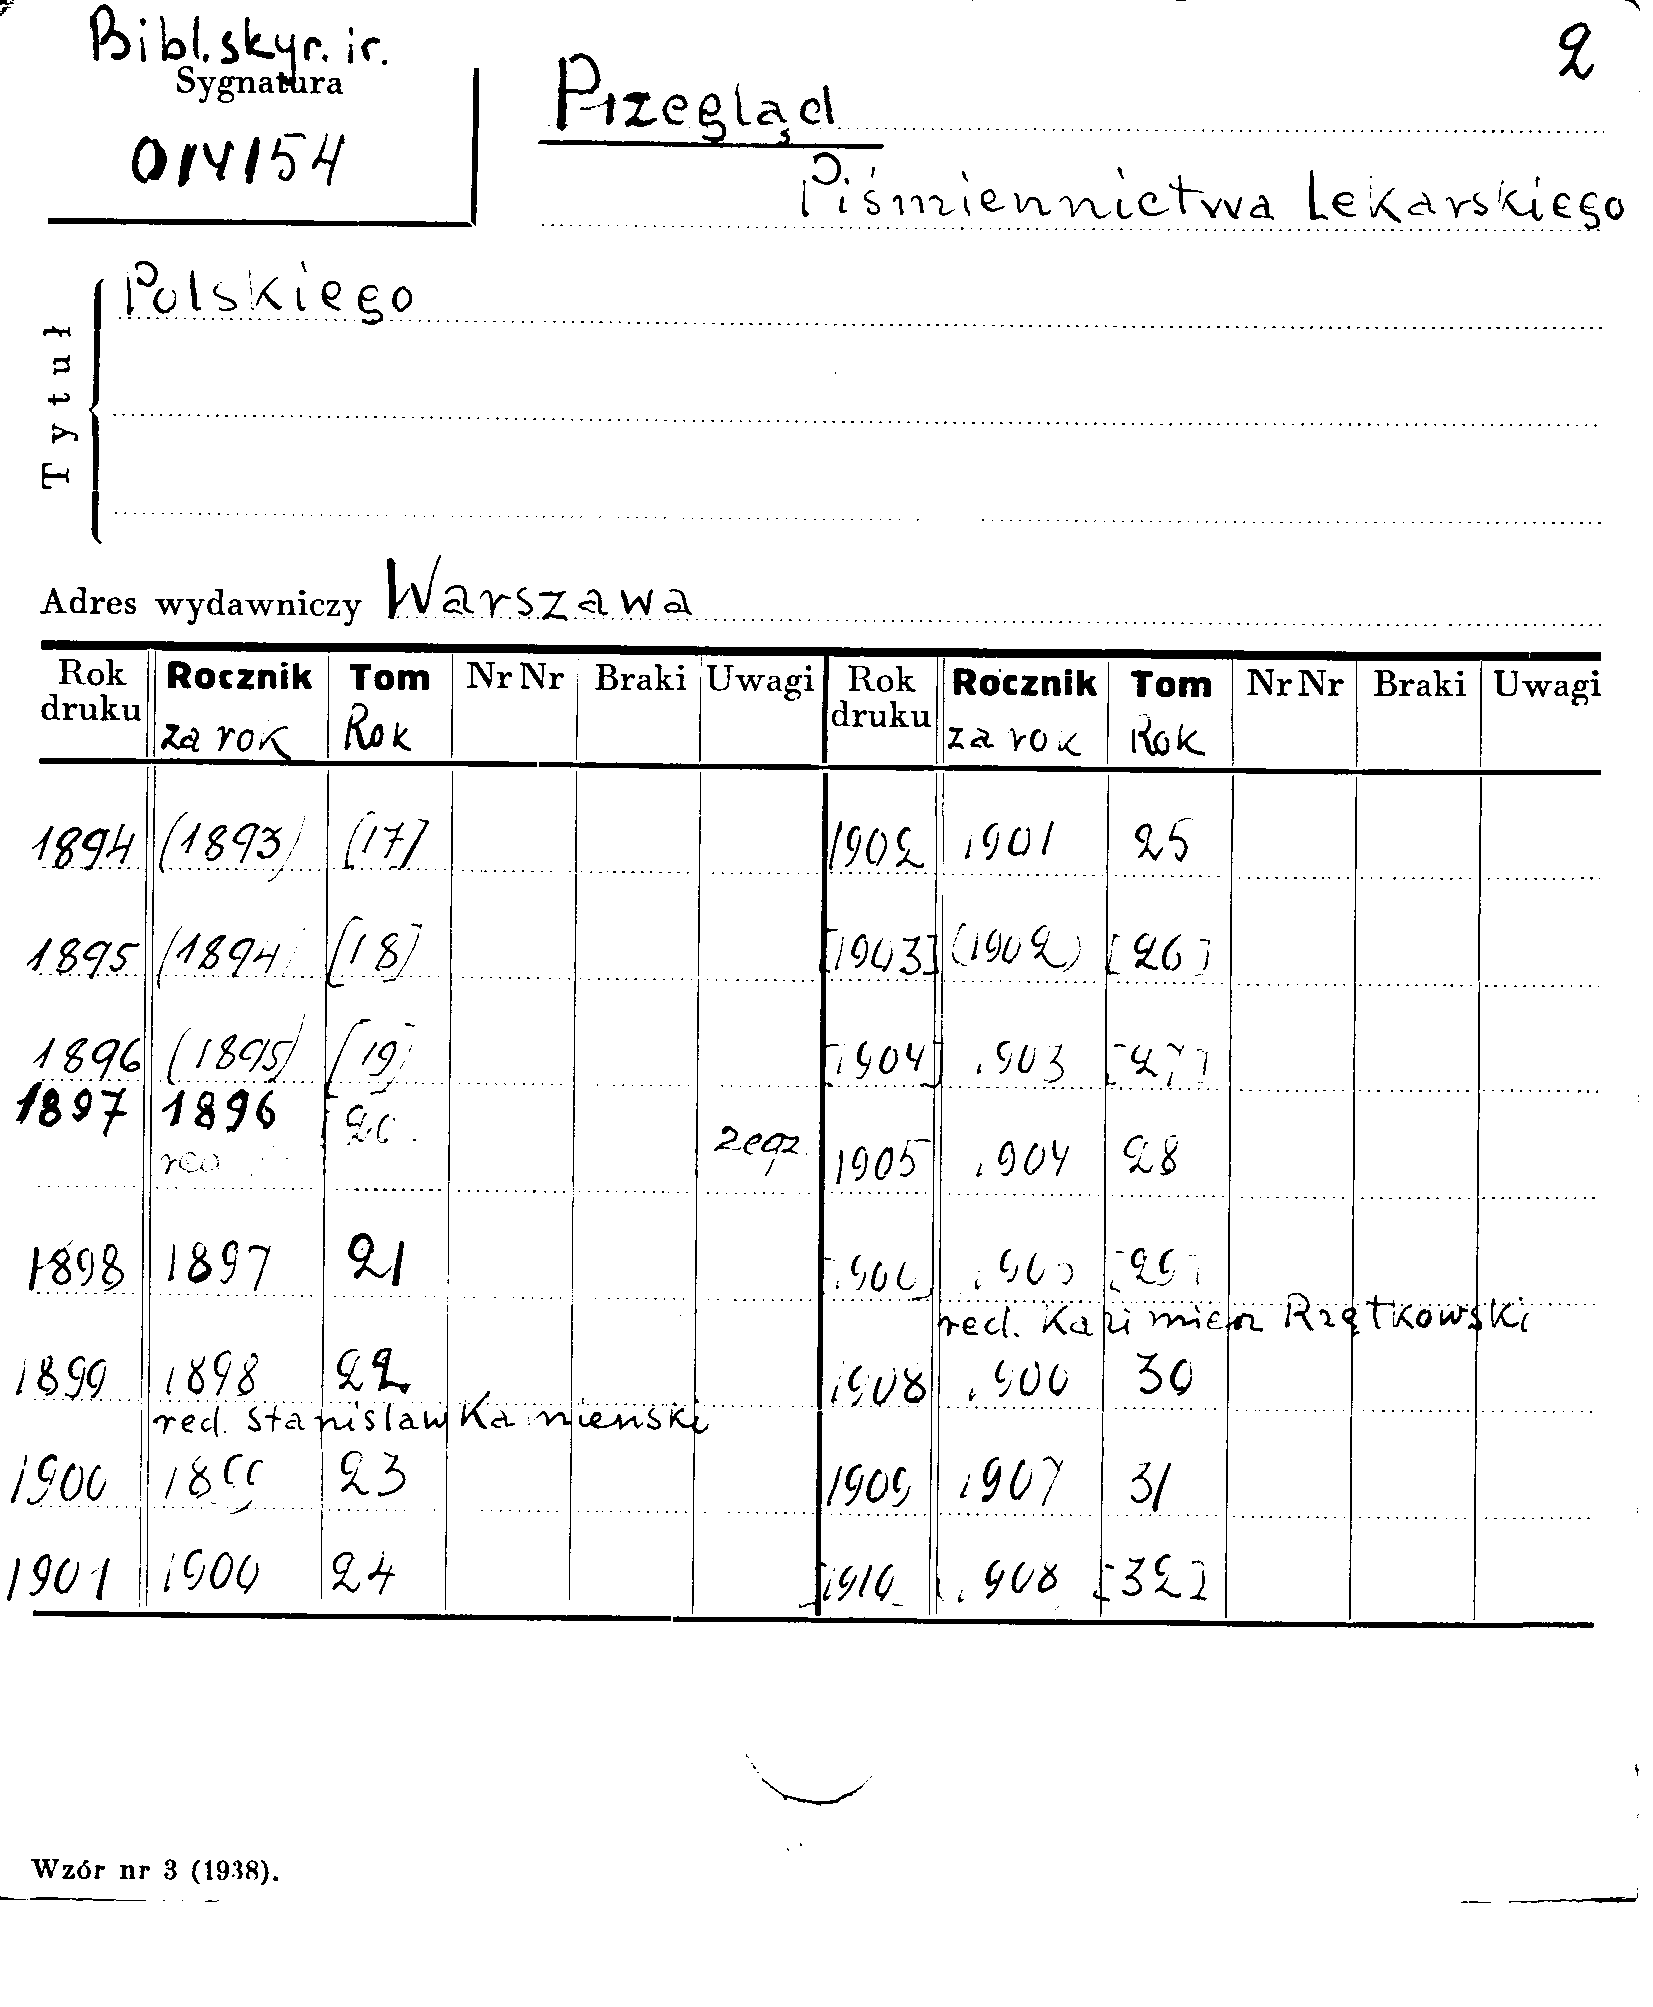 Bibl. skyr. ir.
2
Sygnatura
Przegląd
014154
Piśmiennictwa Lekarskiego
Polskiego
Tytuł
Adres wydawniczy Warszawa
Rok druku Rocznik za rok Tom Rok Nr Nr Braki Uwagi Rok druku Rocznik za rok Tom Rok Nr Nr Braki Uwagi
1894 (1893) [17] 1902 1901 25
1895 (1894) [18] [1903] (1902) [26]
1896 (1895) [19] [1904] 1903 [27]
1897 1896 20
2 egz. 1905 1904 28
1898 1897 21 [1906] 1905 [29]
red. Kazimierz Rzętkowski
1899 1898 22 1908 1906 30
red. Stanislaw Kamienski
1900 1899 23 1909 1907 31
1901 1900 24 [1910] 1908 [32]
Wzór nr 3 (1938).